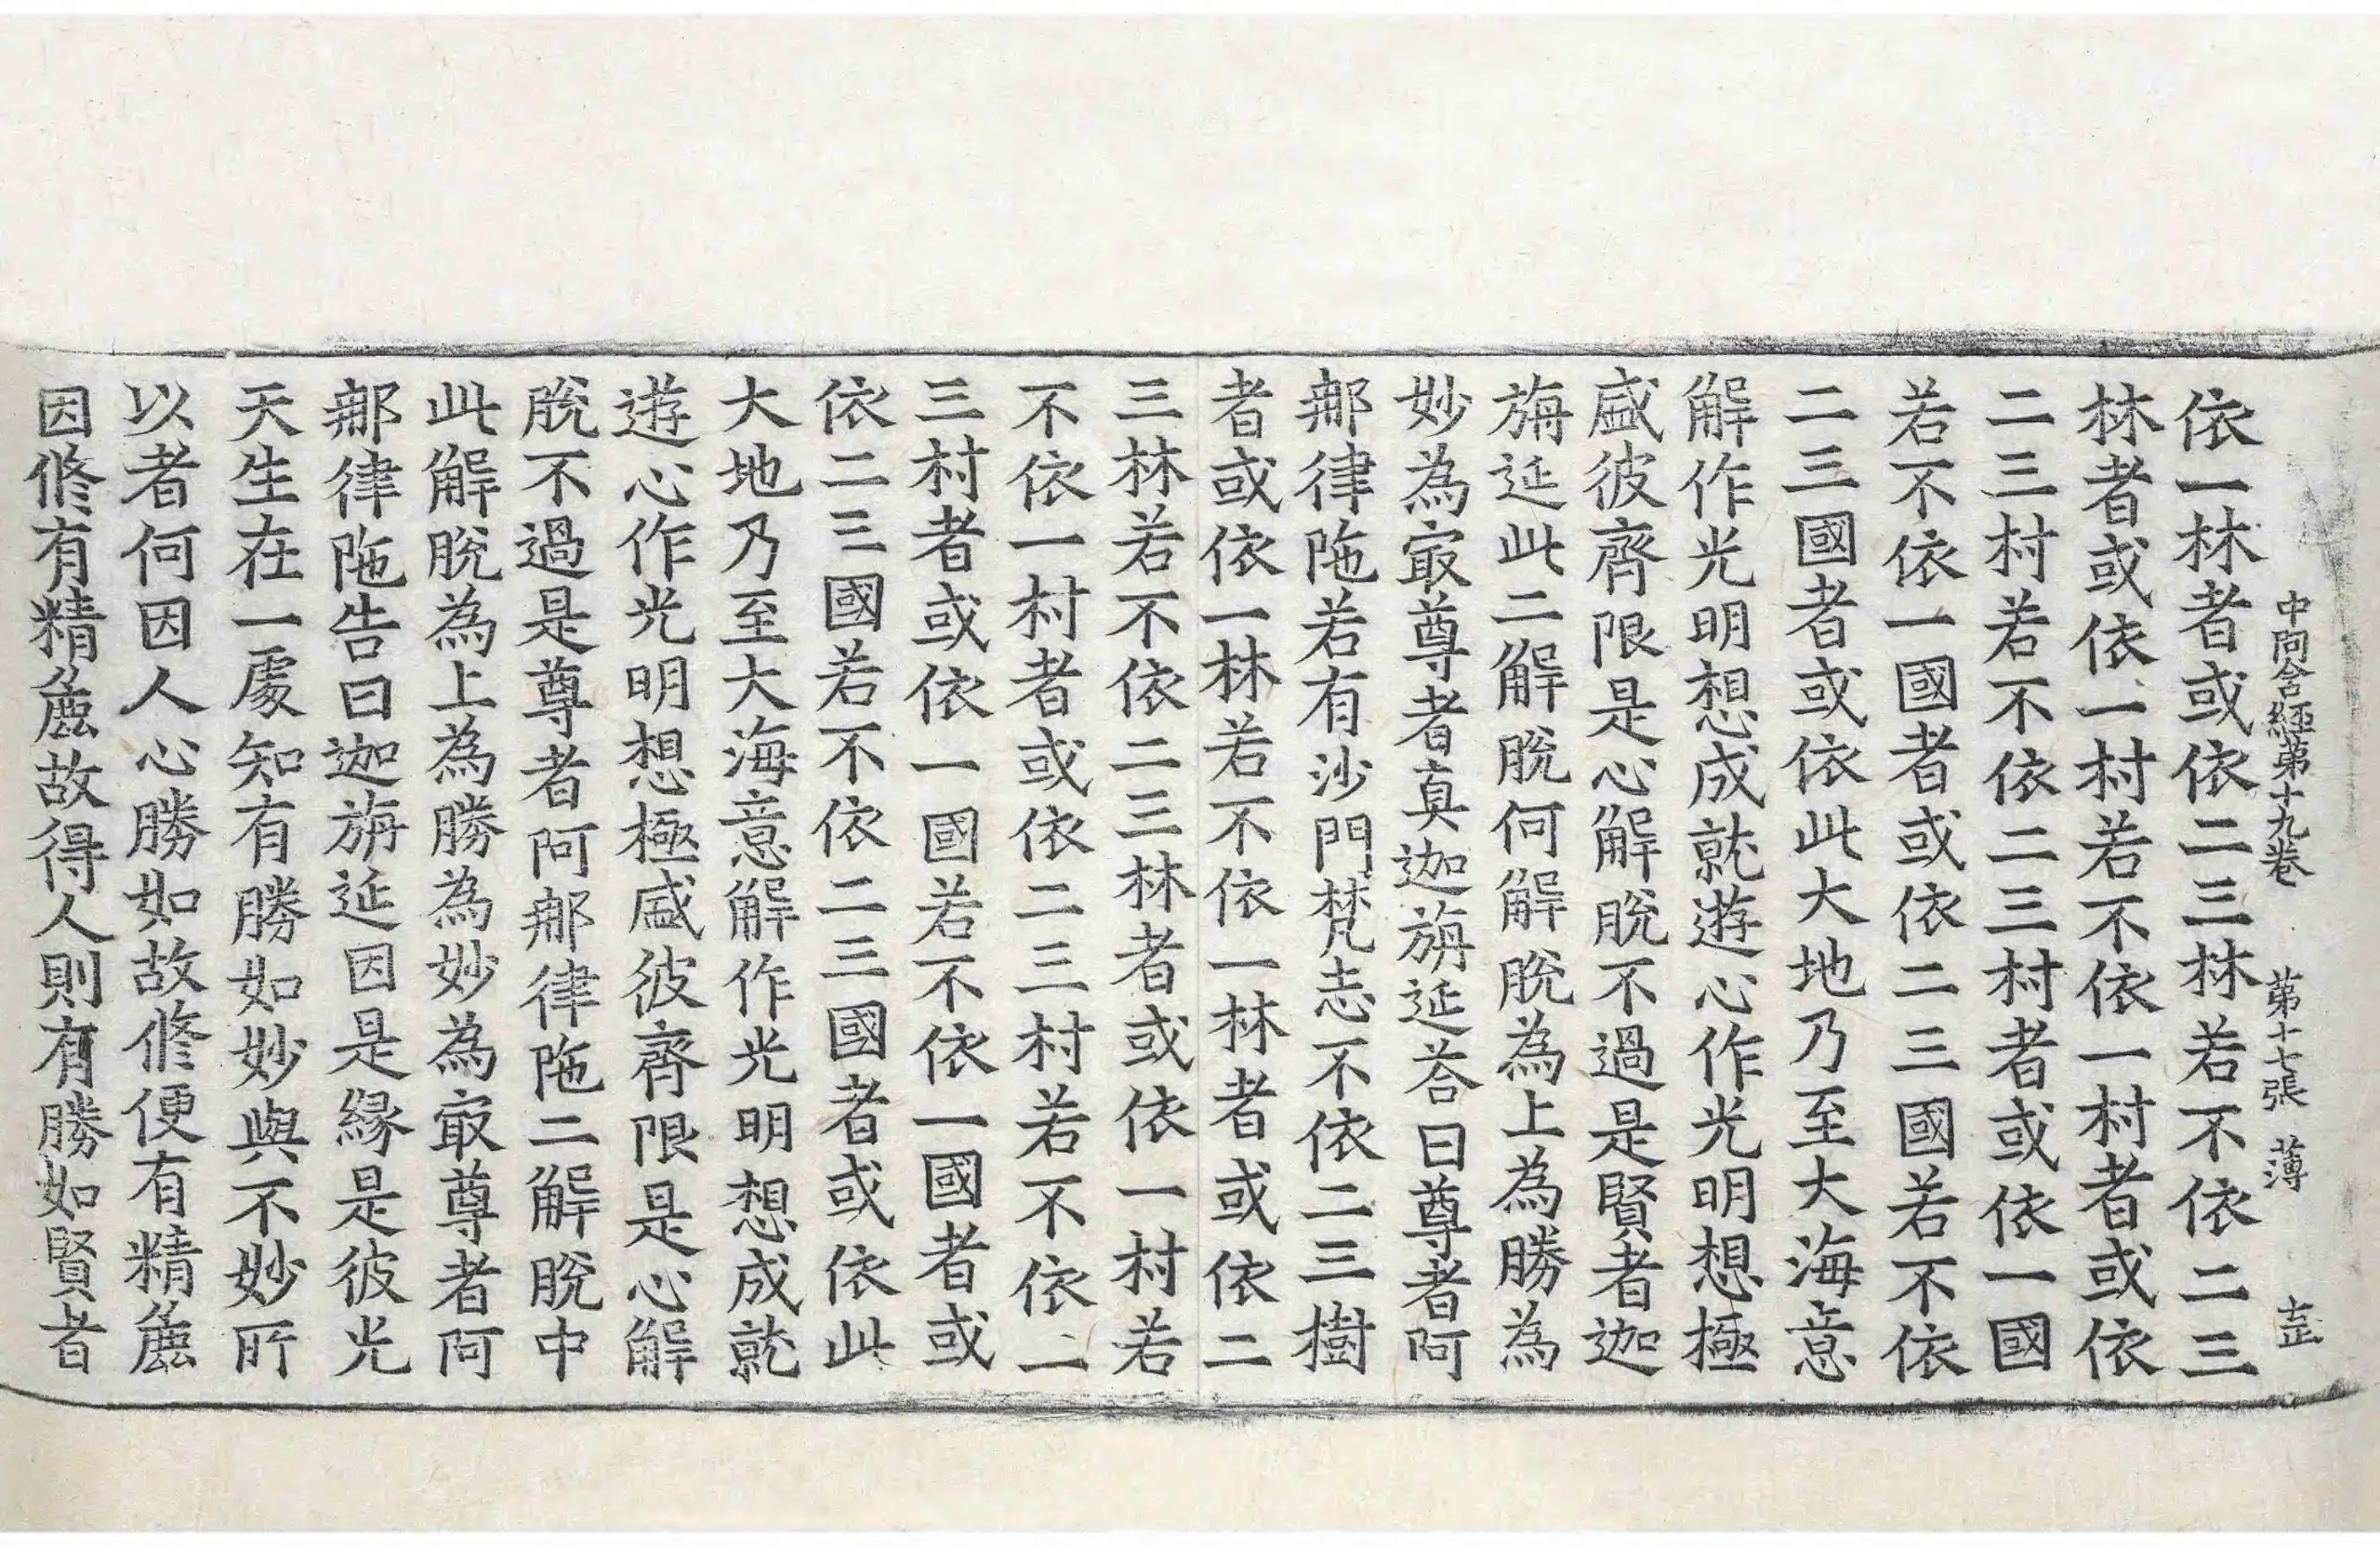 中阿含經第十九卷 第十七張 薄
依一林者或依二三林若不依二三
林者或依一村若不依一村者或依
二三村若不依二三村者或依一國
若不依一國者或依二三國若不依
二三國者或依此大地乃至大海意
解作光明想成就遊心作光明想極
盛彼齊限是心解脫不過是賢者迦
旃延此二解脫何解脫為上為勝為
妙為㝡尊者真迦旃延荅曰尊者阿
那律陁若有沙門梵志不依二三樹
者或依一林若不依一林者或依二
三林若不依二三林者或依一村若
不依一村者或依二三村若不依二
三村者或依一國若不依一國者或
依二三國若不依二三國者或依此
大地乃至大海意解作光明想成就
遊心作光明想極盛彼齊限是心解
脫不過是尊者阿那律陁二解脫中
此解脫為上為勝為妙為㝡尊者阿
那律陁告曰迦旃延因是緣是彼光
天生在一處知有勝如妙與不妙所
以者何因人心勝如故修便有精麁
因修有精麁故得人則有勝如賢者